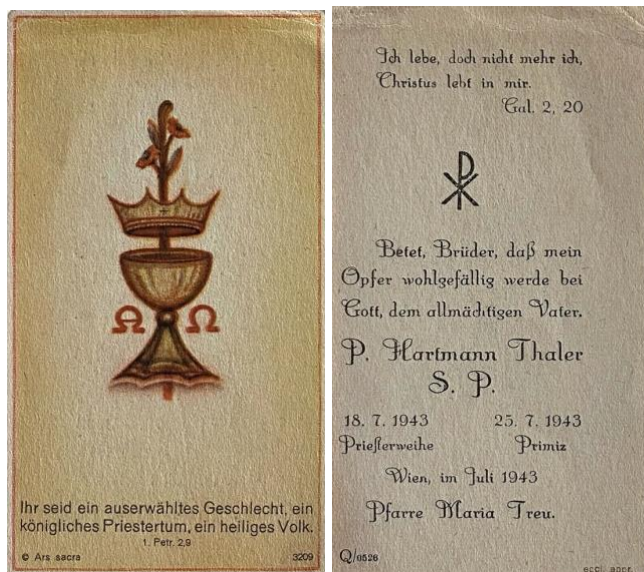 Ω Ω
Ihr seid ein auserwähltes Geschlecht, ein
königliches Priestertum, ein heiliges Volk.
1. Petr. 2,9
© Ars sacra 3209
Ich lebe, doch nicht mehr ich,
Christus lebt in mir.
Gal. 2, 20
Betet, Brüder, daß mein
Opfer wohlgefällig werde bei
Gott, dem allmächtigen Vater.
P. Hartmann Thaler
S. P.
18. 7. 1943 25. 7. 1943
Priesterweihe Primiz
Wien, im Juli 1943
Pfarre Maria Treu.
Q/0526
eccl. appr.